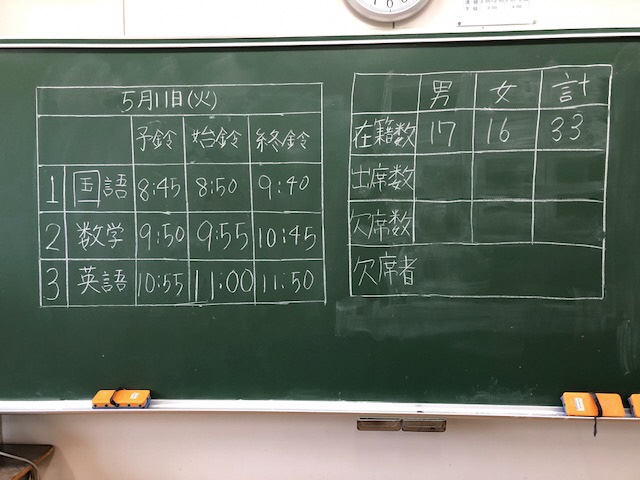 5月11日(火)
予鈴 始鈴 終鈴
1 国語 8:45 8:50 9:40
2 数学 9:50 9:55 10:45
3 英語 10:55 11:00 11:50
男 女 計
在籍数 17 16 33
出席数
欠席数
欠席者